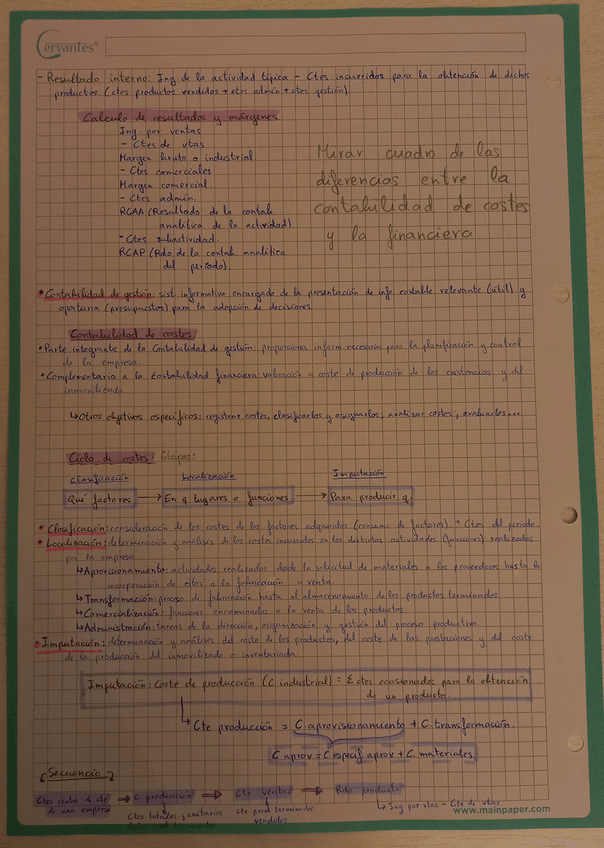 Cervantes
- Resultado interno: Ing de la actividad típica - Ctes incurridos para la obtención de dichos
productos (ctes productos vendidos + ctes admin + ctes gestión)
Calculo de resultados y márgenes
Ing por ventas
- Ctes de vtas
Margen bruto o industrial
- Ctes comerciales
Margen comercial
- Ctes admin.
RCAA (Resultado de la contab
analítica de la actividad)
- Ctes subactividad
RCAP (Rdo de la contab analítica
del período)
Mirar cuadro de las
diferencias entre la
contabilidad de costes
y la financiera
• Contabilidad de gestión: sist informativo encargado de la presentación de info contable relevante (útil) y
oportuna (presupuestos) para la adopción de decisiones
Contabilidad de costes
• Parte integrante de la Contabilidad de gestión: proporciona inform necesaria para la planificación y control
de la empresa
• Complementaria a la contabilidad financiera: valoración a coste de producción de las existencias y del
inmovilizado
↳ Otros objetivos específicos: registrar costes, clasificarlos y asignarlos; analizar costes; evaluarlos...
Ciclo de costes: Etapas:
Clasificación Localización Imputación
Qué factores → En q lugares o funciones → Para producir q
• Clasificación: consideración de los costes de los factores adquiridos (consumo de factores). Ctes del período
• Localización: determinación y análisis de los costes incurridos en las distintas actividades (funciones) realizadas
por la empresa
↳ Aprovisionamiento: actividades realizadas desde la solicitud de materiales a los proveedores hasta la
incorporación de estos a la fabricación o venta
↳ Transformación: proceso de fabricación hasta el almacenamiento de los productos terminados
↳ Comercialización: funciones encaminadas a la venta de los productos
↳ Administración: tareas de la dirección, organización y gestión del proceso productivo
• Imputación: determinación y análisis del coste de los productos, del coste de las prestaciones y del coste
de la producción del inmovilizado o inventariada
Imputación: Coste de producción (C industrial) = Σ ctes ocasionados para la obtención
de un producto.
↳ Cte producción = C.aprovisionamiento + C.transformación
C aprov = C especif aprov + C. materiales
Secuencia
→ C producción → Cte ventas → Rdo producto
de una empresa
Ctes totales y unitarios
cte prod terminados
vendidos
↳ Ing por vtas - Cte de vtas
www.mainpaper.com